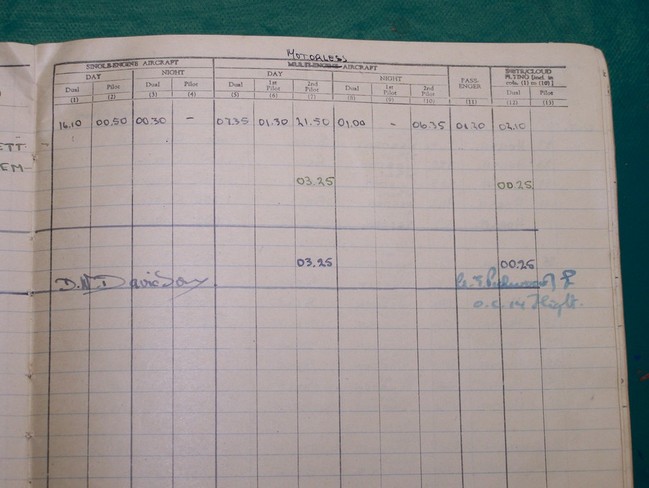 MOTORLESS
SINGLE-ENGINE AIRCRAFT MULTI-ENGINE AIRCRAFT PASS-ENGER INSTR/CLOUD FLYING [Incl. in cols. (1) to (10)]
DAY NIGHT DAY NIGHT
Dual Pilot Dual Pilot Dual 1st Pilot 2nd Pilot Dual 1st Pilot 2nd Pilot Dual Pilot
(1) (2) (3) (4) (5) (6) (7) (8) (9) (10) (11) (12) (13)
16.10 00.50 00.30 - 07.35 01.30 21.50 01.00 - 06.35 01.20 02.10
ETT
EM-
03.25 00.25
03.25 00.25
D.N. Davidson
O.C. 14 Flight.